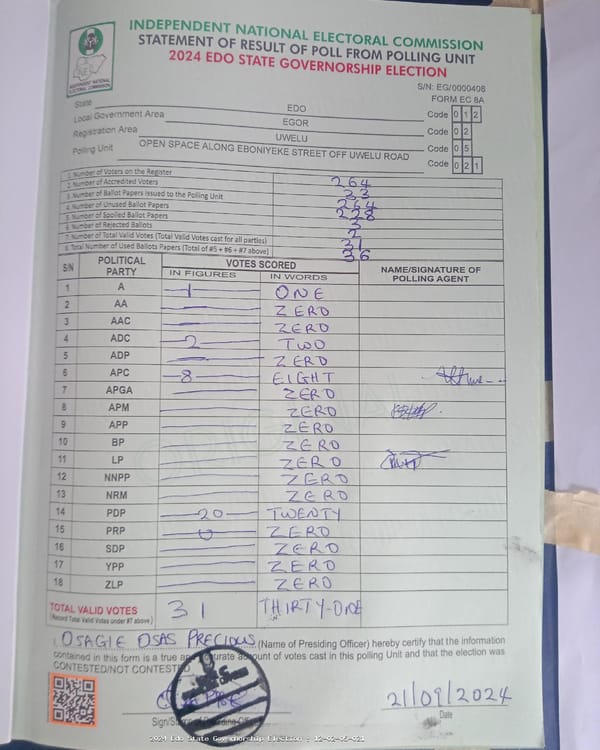 INDEPENDENT NATIONAL ELECTORAL COMMISSION
STATEMENT OF RESULT OF POLL FROM POLLING UNIT
2024 EDO STATE GOVERNORSHIP ELECTION
INDEPENDENT NATIONAL ELECTORAL COMMISSION
S/N: EG/0000408
FORM EC 8A
State EDO Code 0 1 2
Local Government Area EGOR Code 0 2
Registration Area UWELU Code 0 5
Polling Unit OPEN SPACE ALONG EBONIYEKE STREET OFF UWELU ROAD Code 0 2 1
1. Number of Voters on the Register 264
2. Number of Accredited Voters 33
3. Number of Ballot Papers Issued to the Polling Unit 264
4. Number of Unused Ballot Papers 228
5. Number of Spoiled Ballot Papers 3
6. Number of Rejected Ballots 2
7. Number of Total Valid Votes (Total Valid Votes cast for all parties) 31
8. Total Number of Used Ballots Papers (Total of #5 + #6 + #7 above) 36
S/N POLITICAL PARTY VOTES SCORED NAME/SIGNATURE OF POLLING AGENT
IN FIGURES IN WORDS
1 A 1 ONE
2 AA ZERO
3 AAC ZERO
4 ADC 2 TWO
5 ADP ZERO
6 APC 8 EIGHT
7 APGA ZERO
8 APM ZERO
9 APP ZERO
10 BP ZERO
11 LP ZERO
12 NNPP ZERO
13 NRM ZERO
14 PDP 20 TWENTY
15 PRP 0 ZERO
16 SDP ZERO
17 YPP ZERO
18 ZLP ZERO
TOTAL VALID VOTES 31 THIRTY-ONE
(Record Total Valid Votes under #7 above)
I, OSAGIE OSAS PRECIOUS (Name of Presiding Officer) hereby certify that the information
contained in this form is a true and accurate account of votes cast in this polling Unit and that the election was
CONTESTED/NOT CONTESTED
21/09/2024
Date
2024 Edo State Governorship Election : 12-02-05-021